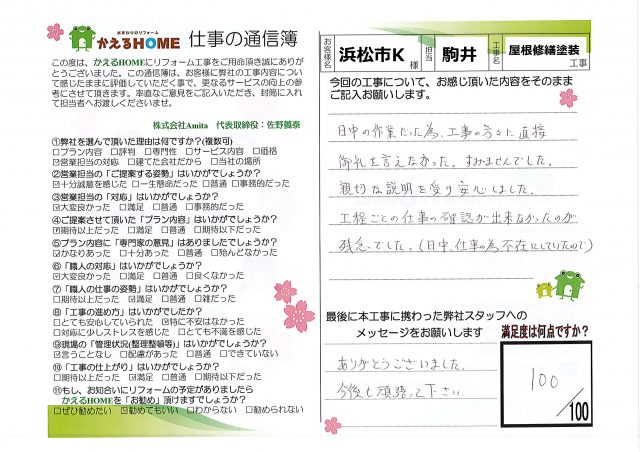 水まわりのリフォーム
かえるHOME 仕事の通信簿
この度は、かえるHOMEにリフォーム工事をご用命頂き誠にありが
とうございました。この通信簿は、お客様に弊社の工事内容につい
て感じたままに評価していただく事で、更なるサービスの向上の参
考にさせて頂きます。率直なご意見をご記入いただき、封筒に入れ
て担当者へお渡しくださいませ。
株式会社Amita 代表取締役:佐野義泰
①弊社を選んで頂いた理由は何ですか?(複数可)
□プラン内容 □評判 □専門性 □サービス内容 □価格
☑営業担当の対応 □建てた会社だから □当社の場所
②営業担当の「ご提案する姿勢」はいかがでしょうか?
☑十分誠意を感じた □一生懸命だった □普通 □事務的だった
③営業担当の「対応」はいかがでしょうか?
☑大変良かった □満足 □普通 □事務的だった
④ご提案させて頂いた「プラン内容」はいかがでしょうか?
☑期待以上だった □満足 □普通 □期待以下だった
⑤プラン内容に「専門家の意見」はありましたでしょうか?
☑かなりあった □十分あった □普通 □殆んどなかった
⑥「職人の対応」はいかがでしょうか?
☑大変良かった □満足 □普通 □良くなかった
⑦「職人の仕事の姿勢」はいかがでしょうか?
□期待以上だった ☑満足 □普通 □雑だった
⑧「工事の進め方」はいかがでしたか?
□とても安心していられた ☑特に不安はなかった
□対応に少しストレスを感じた □とても不満を感じた
⑨現場の「管理状況(整理整頓等)」はいかがでしょうか?
☑言うことなし □配慮があった □普通 □できていない
⑩「工事の仕上がり」はいかがでしょうか?
□期待以上だった ☑満足 □普通 □期待以下だった
⑪もし、お知合いにリフォームの予定がありましたら
かえるHOMEを「お勧め」頂けますでしょうか?
□ぜひ勧めたい ☑勧めてもいい □わからない □勧められない
お客様名 浜松市K 様 担当 駒井 工事名 屋根修繕塗装 工事
今回の工事について、お感じ頂いた内容をそのまま
ご記入お願いします。
日中の作業だった為、工事の方々に直接
御礼を言えなかった。すみませんでした。
親切な説明を受け安心しました。
工程ごとの仕事の確認が出来なかったのが
残念でした。(日中、仕事の為不在にしていたので)
最後に本工事に携わった弊社スタッフへの
メッセージをお願いします
ありがとうございました。
今後も頑張って下さい。
満足度は何点ですか?
100
/100